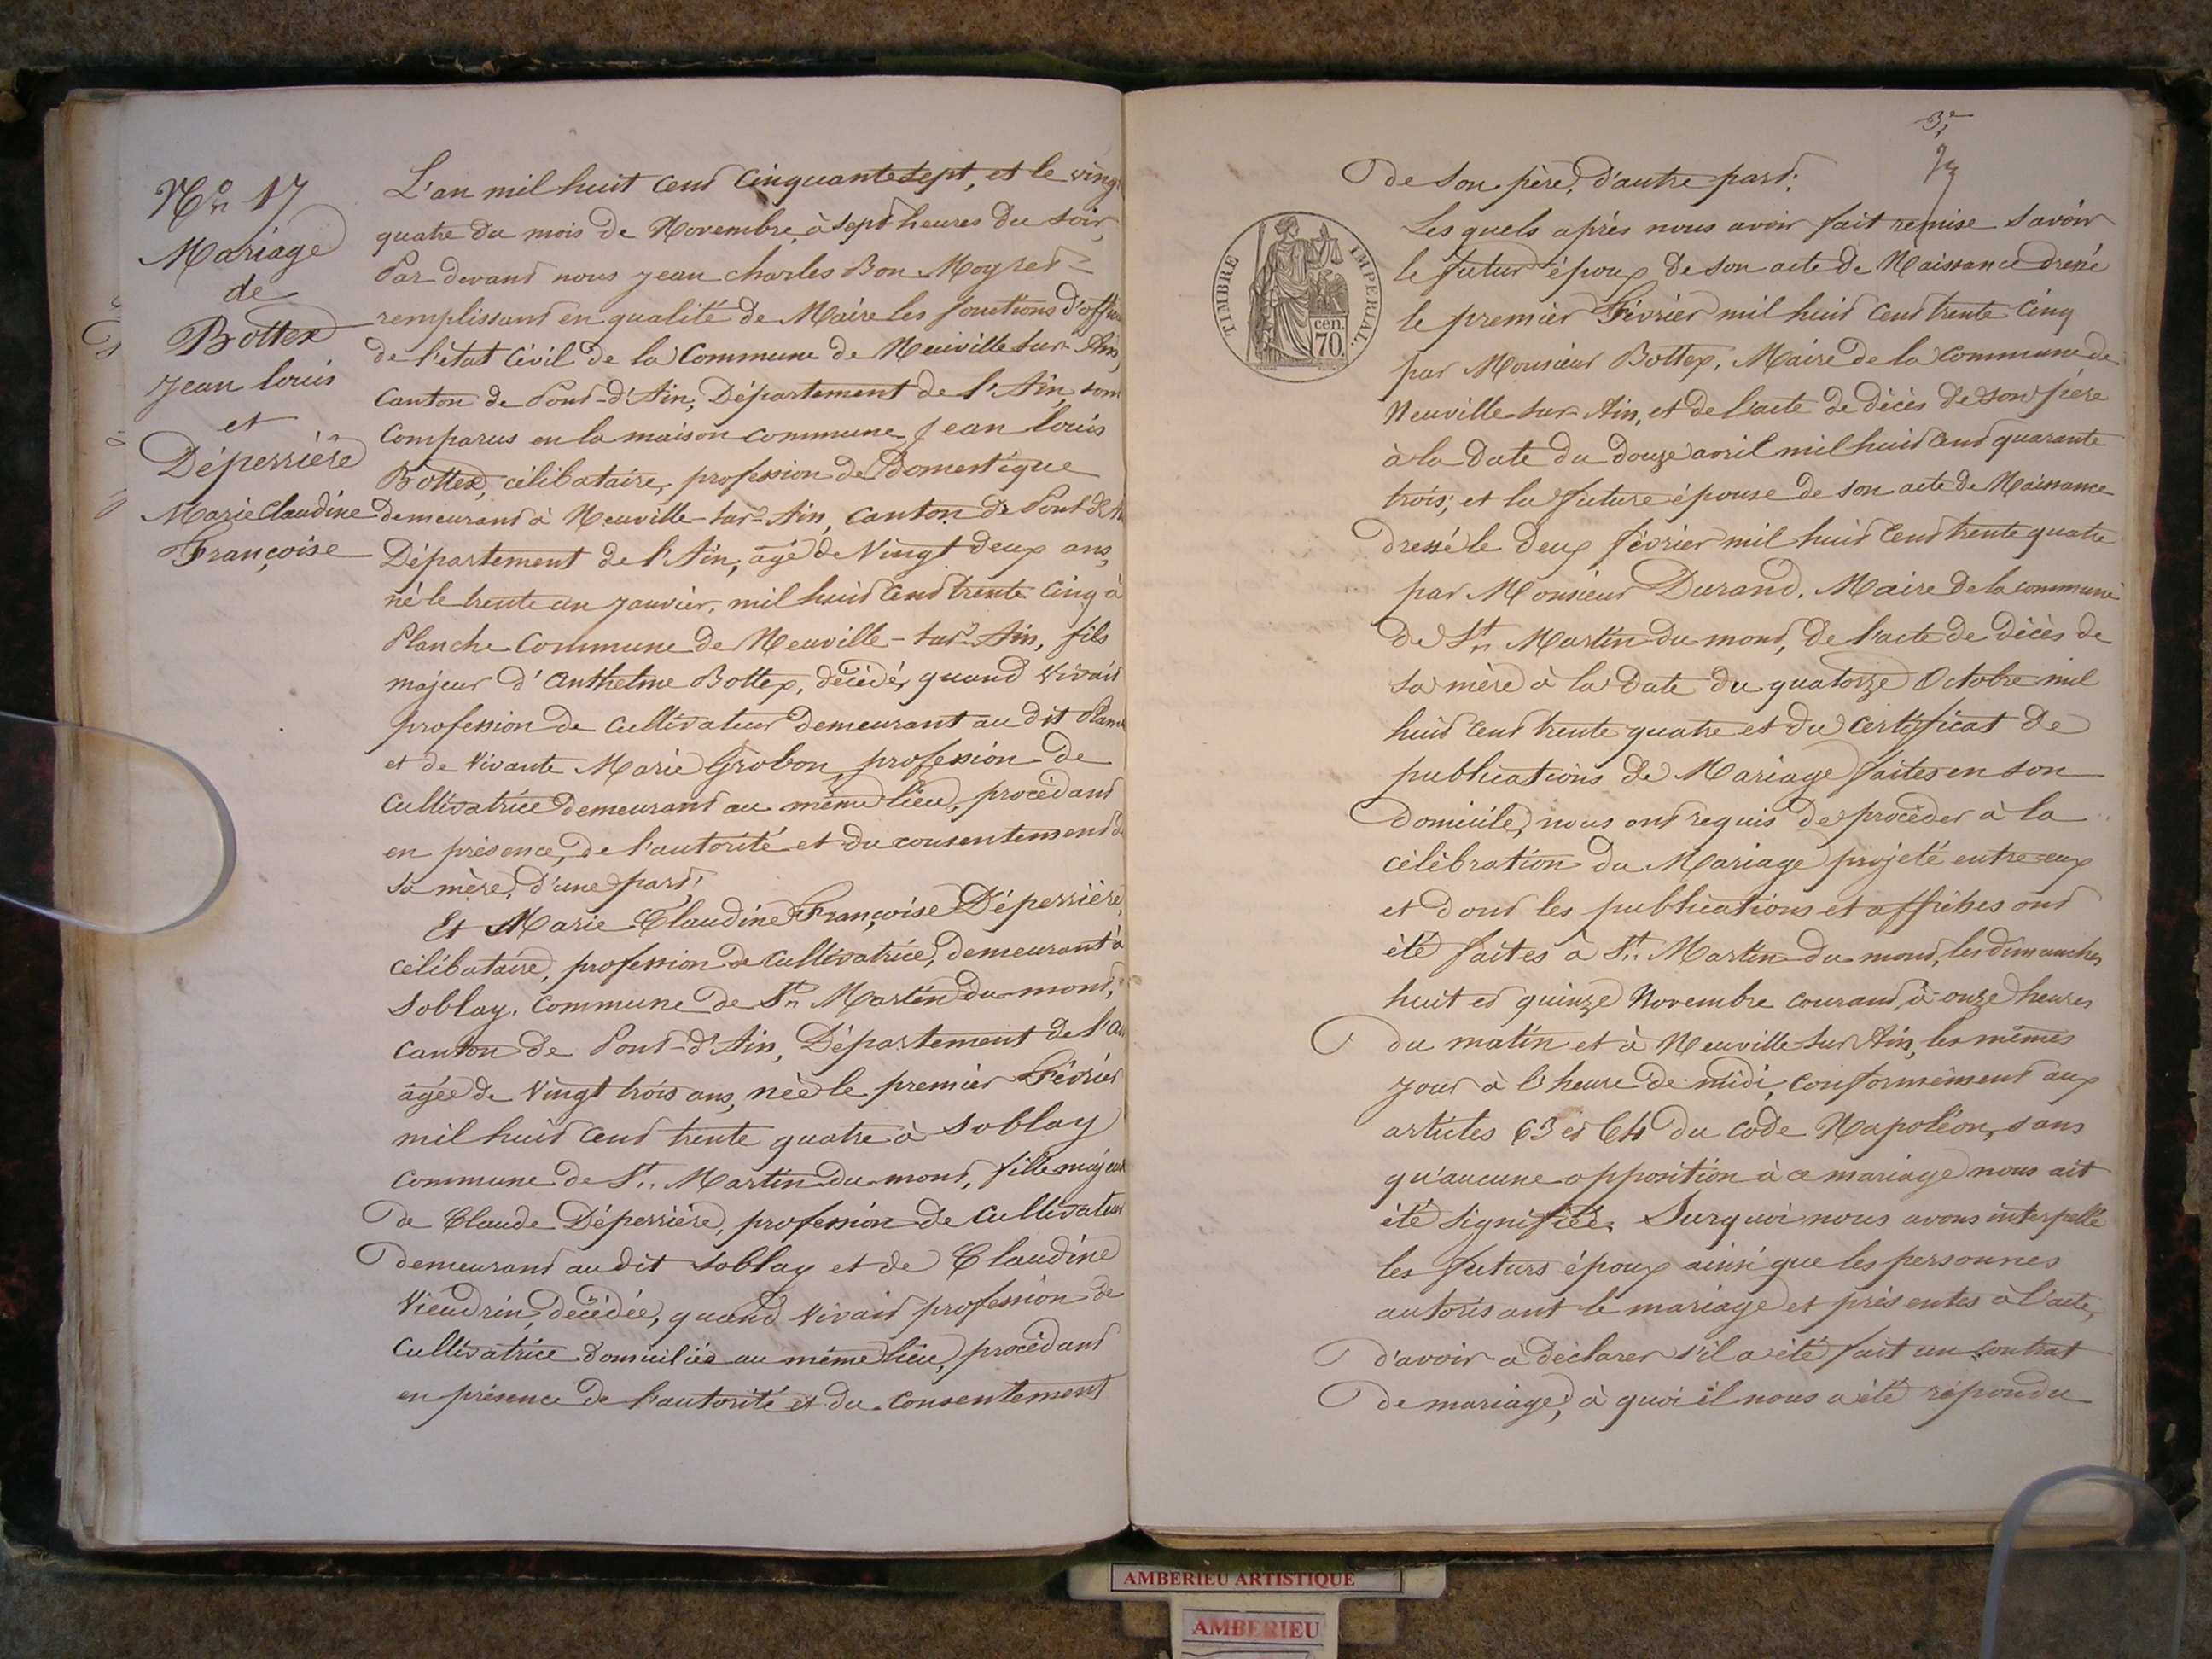 Nº 17
Mariage
de
Bottex
Jean louis
et
Déperrière
Marie Claudine
Françoise
L'an mil huit cent cinquante sept, et le vingt
quatre du mois de Novembre, à sept heures du soir,
Par devant nous Jean Charles Bon Moyret
remplissant en qualité de Maire les fonctions d'officier
de l'état civil de la Commune de Neuville sur Ain,
Canton de Pont-d'Ain, Département de l'Ain, sont
Comparus en la maison commune, Jean louis
Bottex, célibataire, profession de Domestique
demeurant à Neuville-sur-Ain, Canton de Pont d'Ain
Département de l'Ain, âgé de Vingt deux ans,
né le trente un janvier, mil huit cent trente cinq à
Planche Commune de Neuville-sur-Ain, fils
majeur d'Anthelme Bottex, décédé, quand vivait
profession de Cultivateur demeurant au dit Planche
et de vivante Marie Grobon, profession de
Cultivatrice demeurant au même lieu, procédant
en présence, de l'autorité et du consentement de
sa mère, d'une part,
Et Marie Claudine Françoise Déperrière,
célibataire, profession de Cultivatrice, demeurant à
Soblay, Commune de St Martin du mont,
canton de Pont-d'Ain, Département de l'Ain
âgée de Vingt trois ans, née le premier Février
mil huit cent trente quatre à Soblay
commune de St Martin du mont, fille majeure
de Claude Déperrière, profession de Cultivateur
demeurant au dit Soblay et de Claudine
Vieudrin, décédée, quand vivait profession de
Cultivatrice domiciliée au même lieu, procédant
en présence de l'autorité et du consentement
3e
de son père, d'autre part.
TIMBRE IMPERIAL.
cen.
70.
Les quels après nous avoir fait remise savoir
le futur époux de son acte de Naissance dressé
le premier Février mil huit cent trente cinq
par Monsieur Bottex, Maire de la Commune de
Neuville-sur-Ain, et de l'acte de décès de son père
à la date du douze avril mil huit cent quarante
trois; et la future épouse de son acte de Naissance
dressé le deux février mil huit cent trente quatre
par Monsieur Durand, Maire de la commune
de St Martin du mont, de l'acte de décès de
sa mère à la date du quatorze Octobre mil
huit cent trente quatre et du certificat de
publications de Mariage faites en son
domicile, nous ont requis de procéder à la
célébration du Mariage projeté entre eux
et dont les publications et affiches ont
été faites à St Martin du mont, les dimanches
huit et quinze Novembre courant, à onze heures
du matin et à Neuville sur Ain, les mêmes
jour à l'heure de midi, conformément aux
articles 63 et 64 du code Napoléon, sans
qu'aucune opposition à ce mariage nous ait
été signifiée. Surquoi nous avons interpellé
les futurs époux ainsi que les personnes
autorisant le mariage et présentes à l'acte,
d'avoir à déclarer s'il a été fait un contrat
de mariage, à quoi il nous a été répondu
AMBERIEU ARTISTIQUE
AMBERIEU